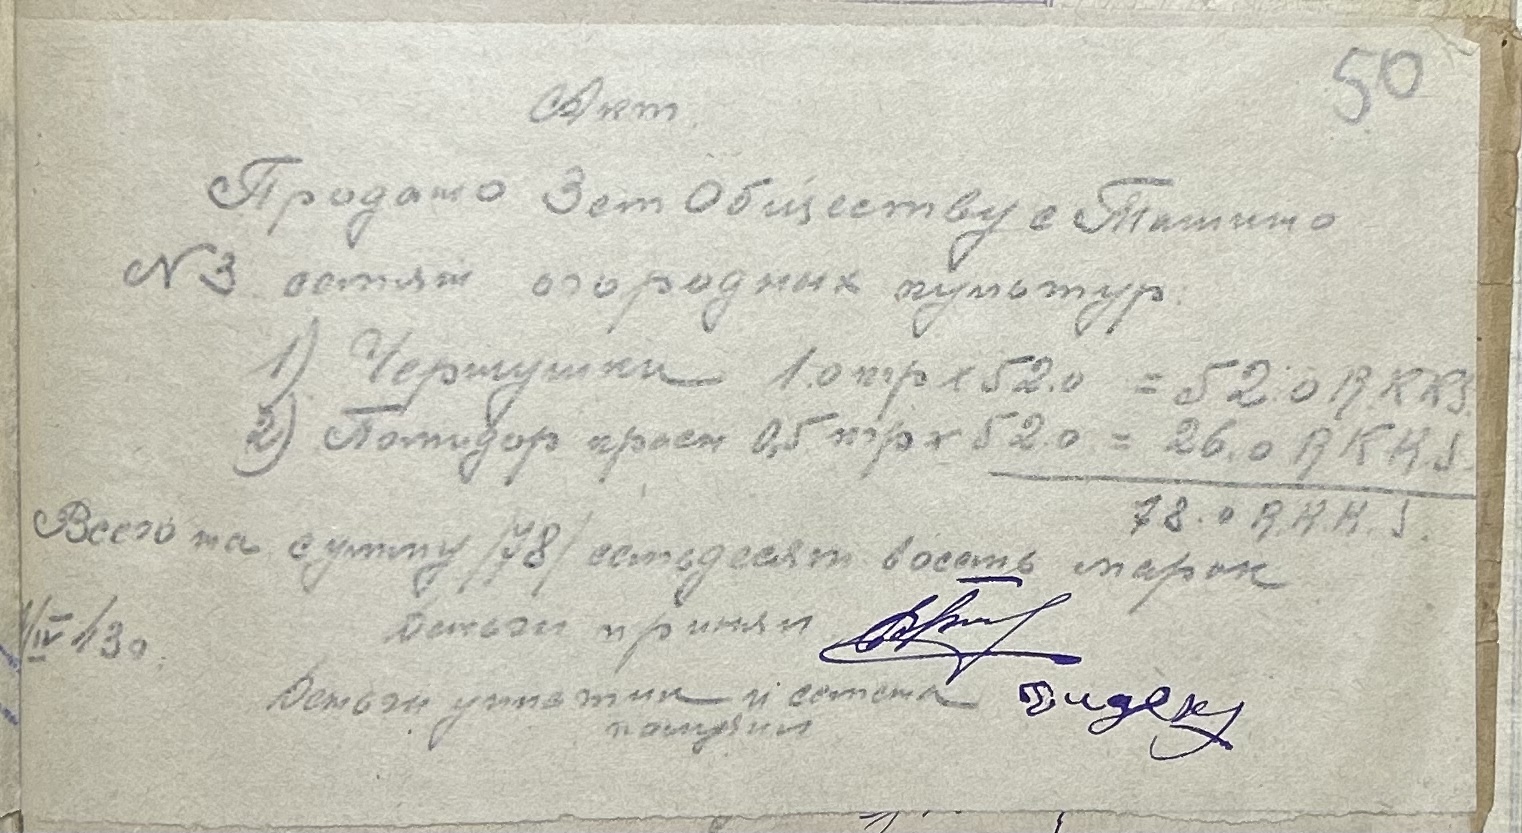 50
Акт.
Продано Зем Обществу с Тамино
N 3 семян огородных культур.
1) Чернушки 1.0 кгр х 52.0 = 52.0 R.KKS.
2) Помидор красн 0,5 кгр х 52.0 = 26.0 RKKS.
78.0 R.K.K.S.
Всего на сумму /78/ семьдесят восемь марок
1/IV 43 г. Деньги принял
Деньги уплатил и семена
получил